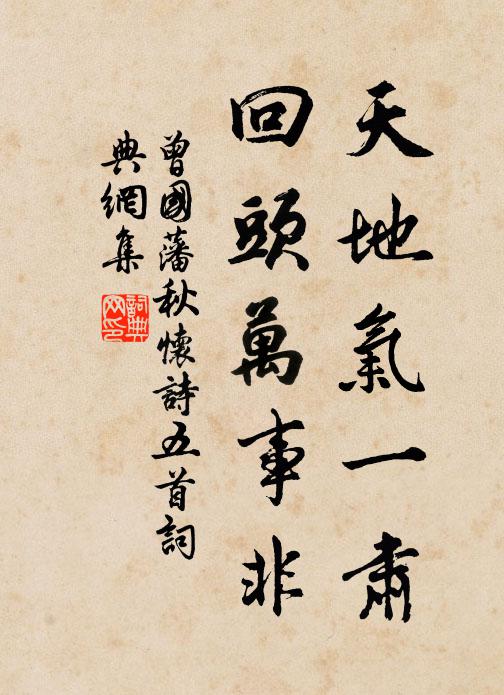 天地氣一肅
回頭萬事非
曾國藩秋懷詩五首詞
典網集
詞典
网印